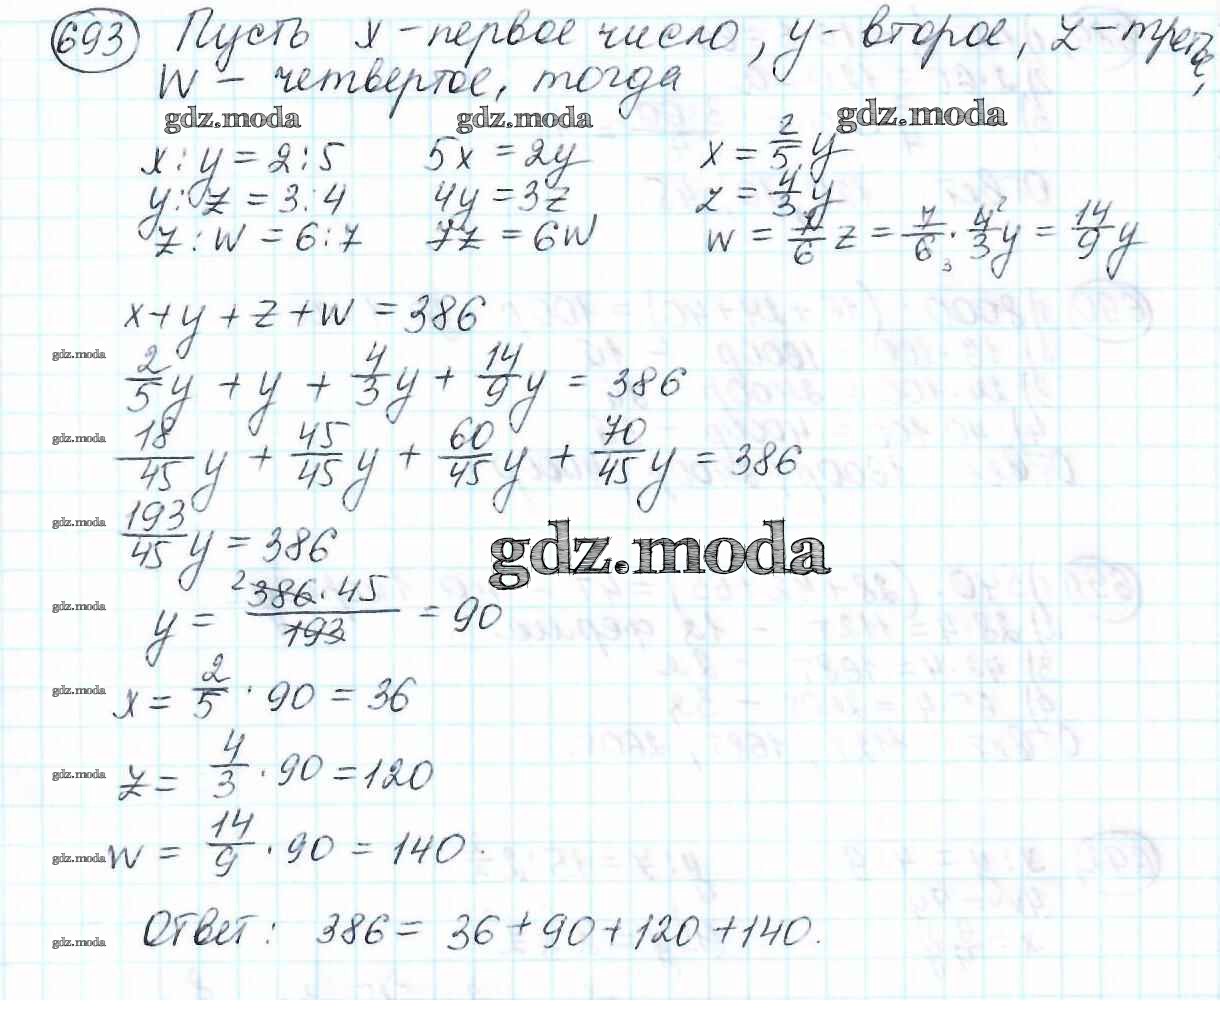 693 Пусть x - первое число, y - второе, z - третье,
w - четвертое, тогда
gdz.moda gdz.moda gdz.moda
x : y = 2 : 5 5x = 2y x = 2/5 y
y : z = 3 : 4 4y = 3z z = 4/3 y
z : w = 6 : 7 7z = 6w w = 7/6 z = 7/6 3 · 4/3 2 y = 14/9 y
x + y + z + w = 386
gdz.moda 2/5 y + y + 4/3 y + 14/9 y = 386
gdz.moda 18/45 y + 45/45 y + 60/45 y + 70/45 y = 386
gdz.moda 193/45 y = 386
gdz.moda
gdz.moda y = 2 386 · 45 / 193 = 90
gdz.moda x = 2/5 · 90 = 36
gdz.moda z = 4/3 · 90 = 120
gdz.moda w = 14/9 · 90 = 140.
gdz.moda Ответ: 386 = 36 + 90 + 120 + 140.